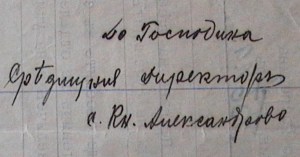 До Господина
Срѣдищния директоръ
с. Кн. Александрово